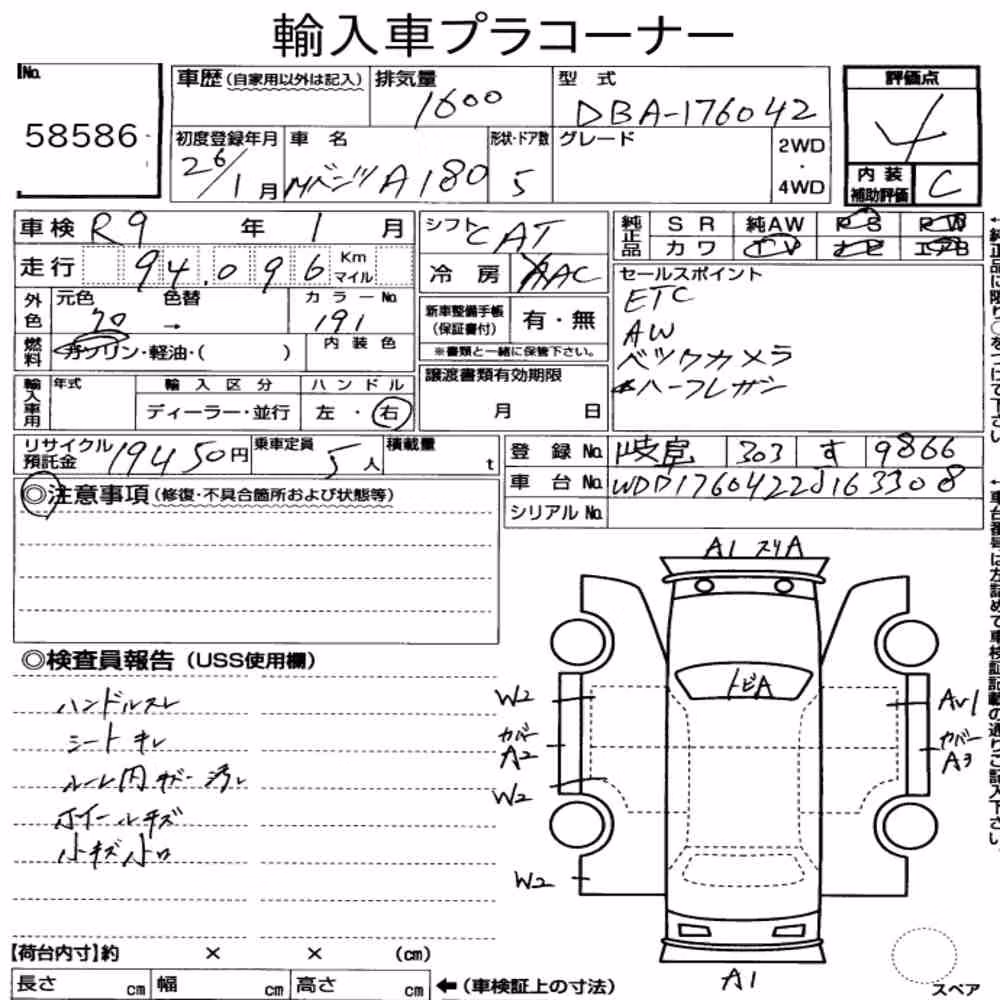 輸入車プラコーナー
No. 58586
車歴(自家用以外は記入)
排気量 1600
型式 DBA-176042
評価点 4
初度登録年月 26/1月
車名 Mベンツ A180
形状・ドア数 5
グレード
2WD・4WD
内装補助評価 C
車検 R9年 1月
走行 94,096 Km マイル
外色 元色 70 → 色替
カラーNo. 191
燃料 ガソリン・軽油・( )
内装色
輸入車用 年式
輸入区分 ディーラー・並行
ハンドル 左・右
シフト CAT
冷房 AAC
新車整備手帳(保証書付) 有・無
※書類と一緒に保管下さい。
譲渡書類有効期限
月 日
純正品 SR 純AW PS PW
カワ TV ナビ エアB
セールスポイント
ETC
AW
バックカメラ
ハーフレザー
リサイクル預託金 19450円
乗車定員 5人
積載量 t
登録No. 岐阜 303 す 9866
車台No. WDD1760422J163308
シリアルNo.
◎注意事項(修復・不具合箇所および状態等)
◎検査員報告(USS使用欄)
ハンドルスレ
シートキレ
ルーム内 汚レ
ホイールキズ
小キズ小凹
A1 スリA
トビA
W2
カバーA2
W2
W2
AU1
カバーA3
A1
【荷台内寸】約 × × (cm)
長さ cm 幅 cm 高さ cm ←(車検証上の寸法)
スペア
←純正品に限り○をつけて下さい
←車台番号は左詰めで車検証記載の通りご記入下さい。